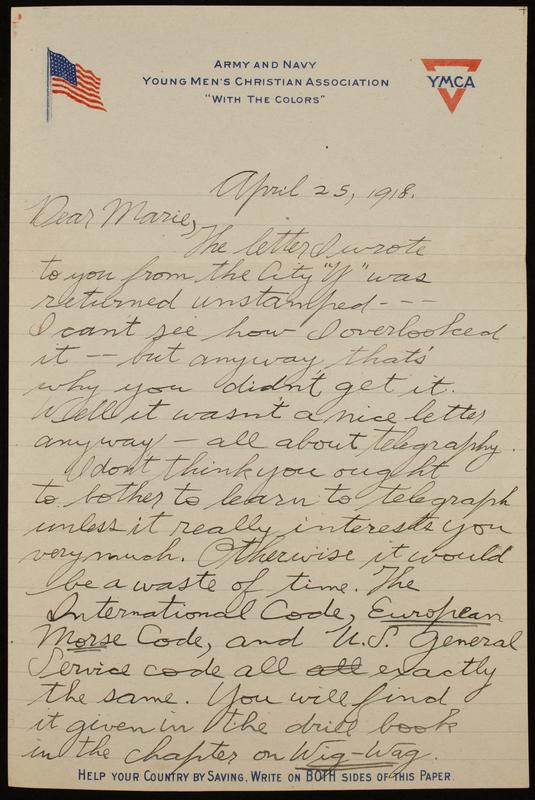 ARMY AND NAVY
YOUNG MEN'S CHRISTIAN ASSOCIATION
"WITH THE COLORS"
YMCA
April 25, 1918.
Dear Marie,
The letter I wrote
to you from the City "Y" was
returned unstamped - - -
I can't see how I overlooked
it -- but anyway that's
why you didn't get it.
Well it wasn't a nice letter
anyway - all about telegraphy.
I don't think you ought
to bother to learn to telegraph
unless it really interests you
very much. Otherwise it would
be a waste of time. The
International Code, European
Morse Code, and U.S. General
Service code all all exactly
the same. You will find
it given in the drill book
in the chapter on Wig-Wag.
HELP YOUR COUNTRY BY SAVING, WRITE ON BOTH SIDES OF THIS PAPER.